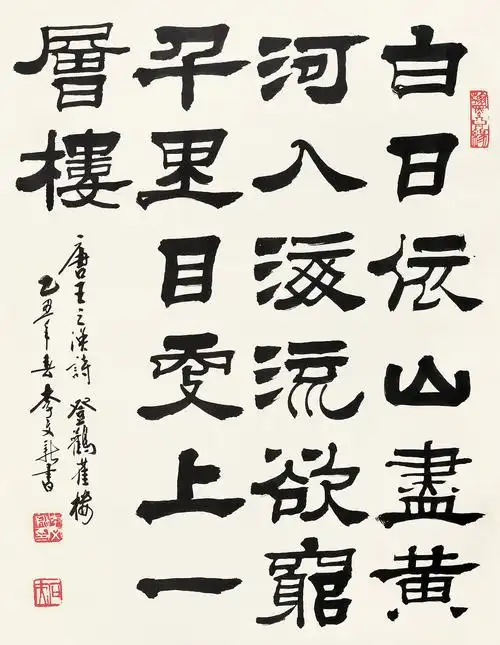 白日依山盡黃
河入海流欲窮
千里目更上一
層樓
唐王之渙詩 登鸛雀樓
乙丑年春 李文新書